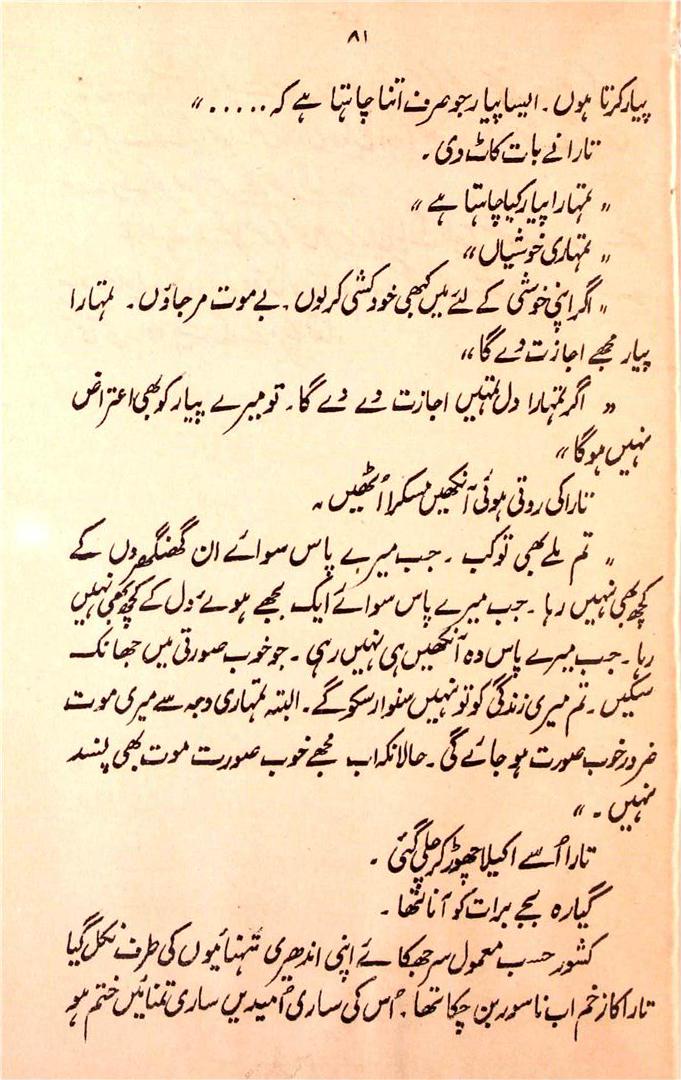 ۸۱
پیار کرتا ہوں۔ ایسا پیار جو صرف اتنا چاہتا ہے کہ ....."
تارا نے بات کاٹ دی۔
" تمہارا پیار کیا چاہتا ہے "
" تمہاری خوشیاں "
" اگر اپنی خوشی کے لئے میں کبھی خودکشی کر لوں۔ بے موت مر جاؤں۔ تمہارا
پیار مجھے اجازت دے گا "
" اگر تمہارا دل تمہیں اجازت دے دے گا۔ تو میرے پیار کو بھی اعتراض
نہیں ہو گا "
تارا کی روتی ہوئی آنکھیں مسکرا اُٹھیں۔
" تم ملے بھی تو کب۔ جب میرے پاس سوائے ان گھنگھروں کے
کچھ بھی نہیں رہا۔ جب میرے پاس سوائے ایک بجھے ہوئے دل کے کچھ بھی نہیں
رہا۔ جب میرے پاس وہ آنکھیں ہی نہیں رہی۔ جو خوب صورتی میں جھانک
سکیں۔ تم میری زندگی کو تو نہیں سنوار سکو گے۔ البتہ تمہاری وجہ سے میری موت
ضرور خوب صورت ہو جائے گی۔ حالانکہ اب مجھے خوب صورت موت بھی پسند
نہیں۔ "
تارا اُسے اکیلا چھوڑ کر چلی گئی۔
گیارہ بجے برات کو آنا تھا۔
کشور حسب معمول سر جھکائے اپنی اندھیری تنہائیوں کی طرف نکل گیا
تارا کا زخم اب ناسور بن چکا تھا۔ اُس کی ساری اُمیدیں ساری تمنائیں ختم ہو